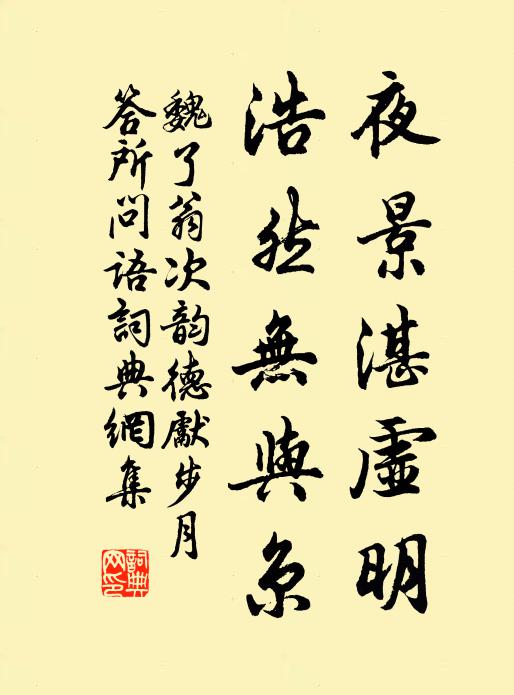 夜景湛虛明
浩然無與京
魏了翁次韵德獻步月
答所問語詞典網集
詞典网印